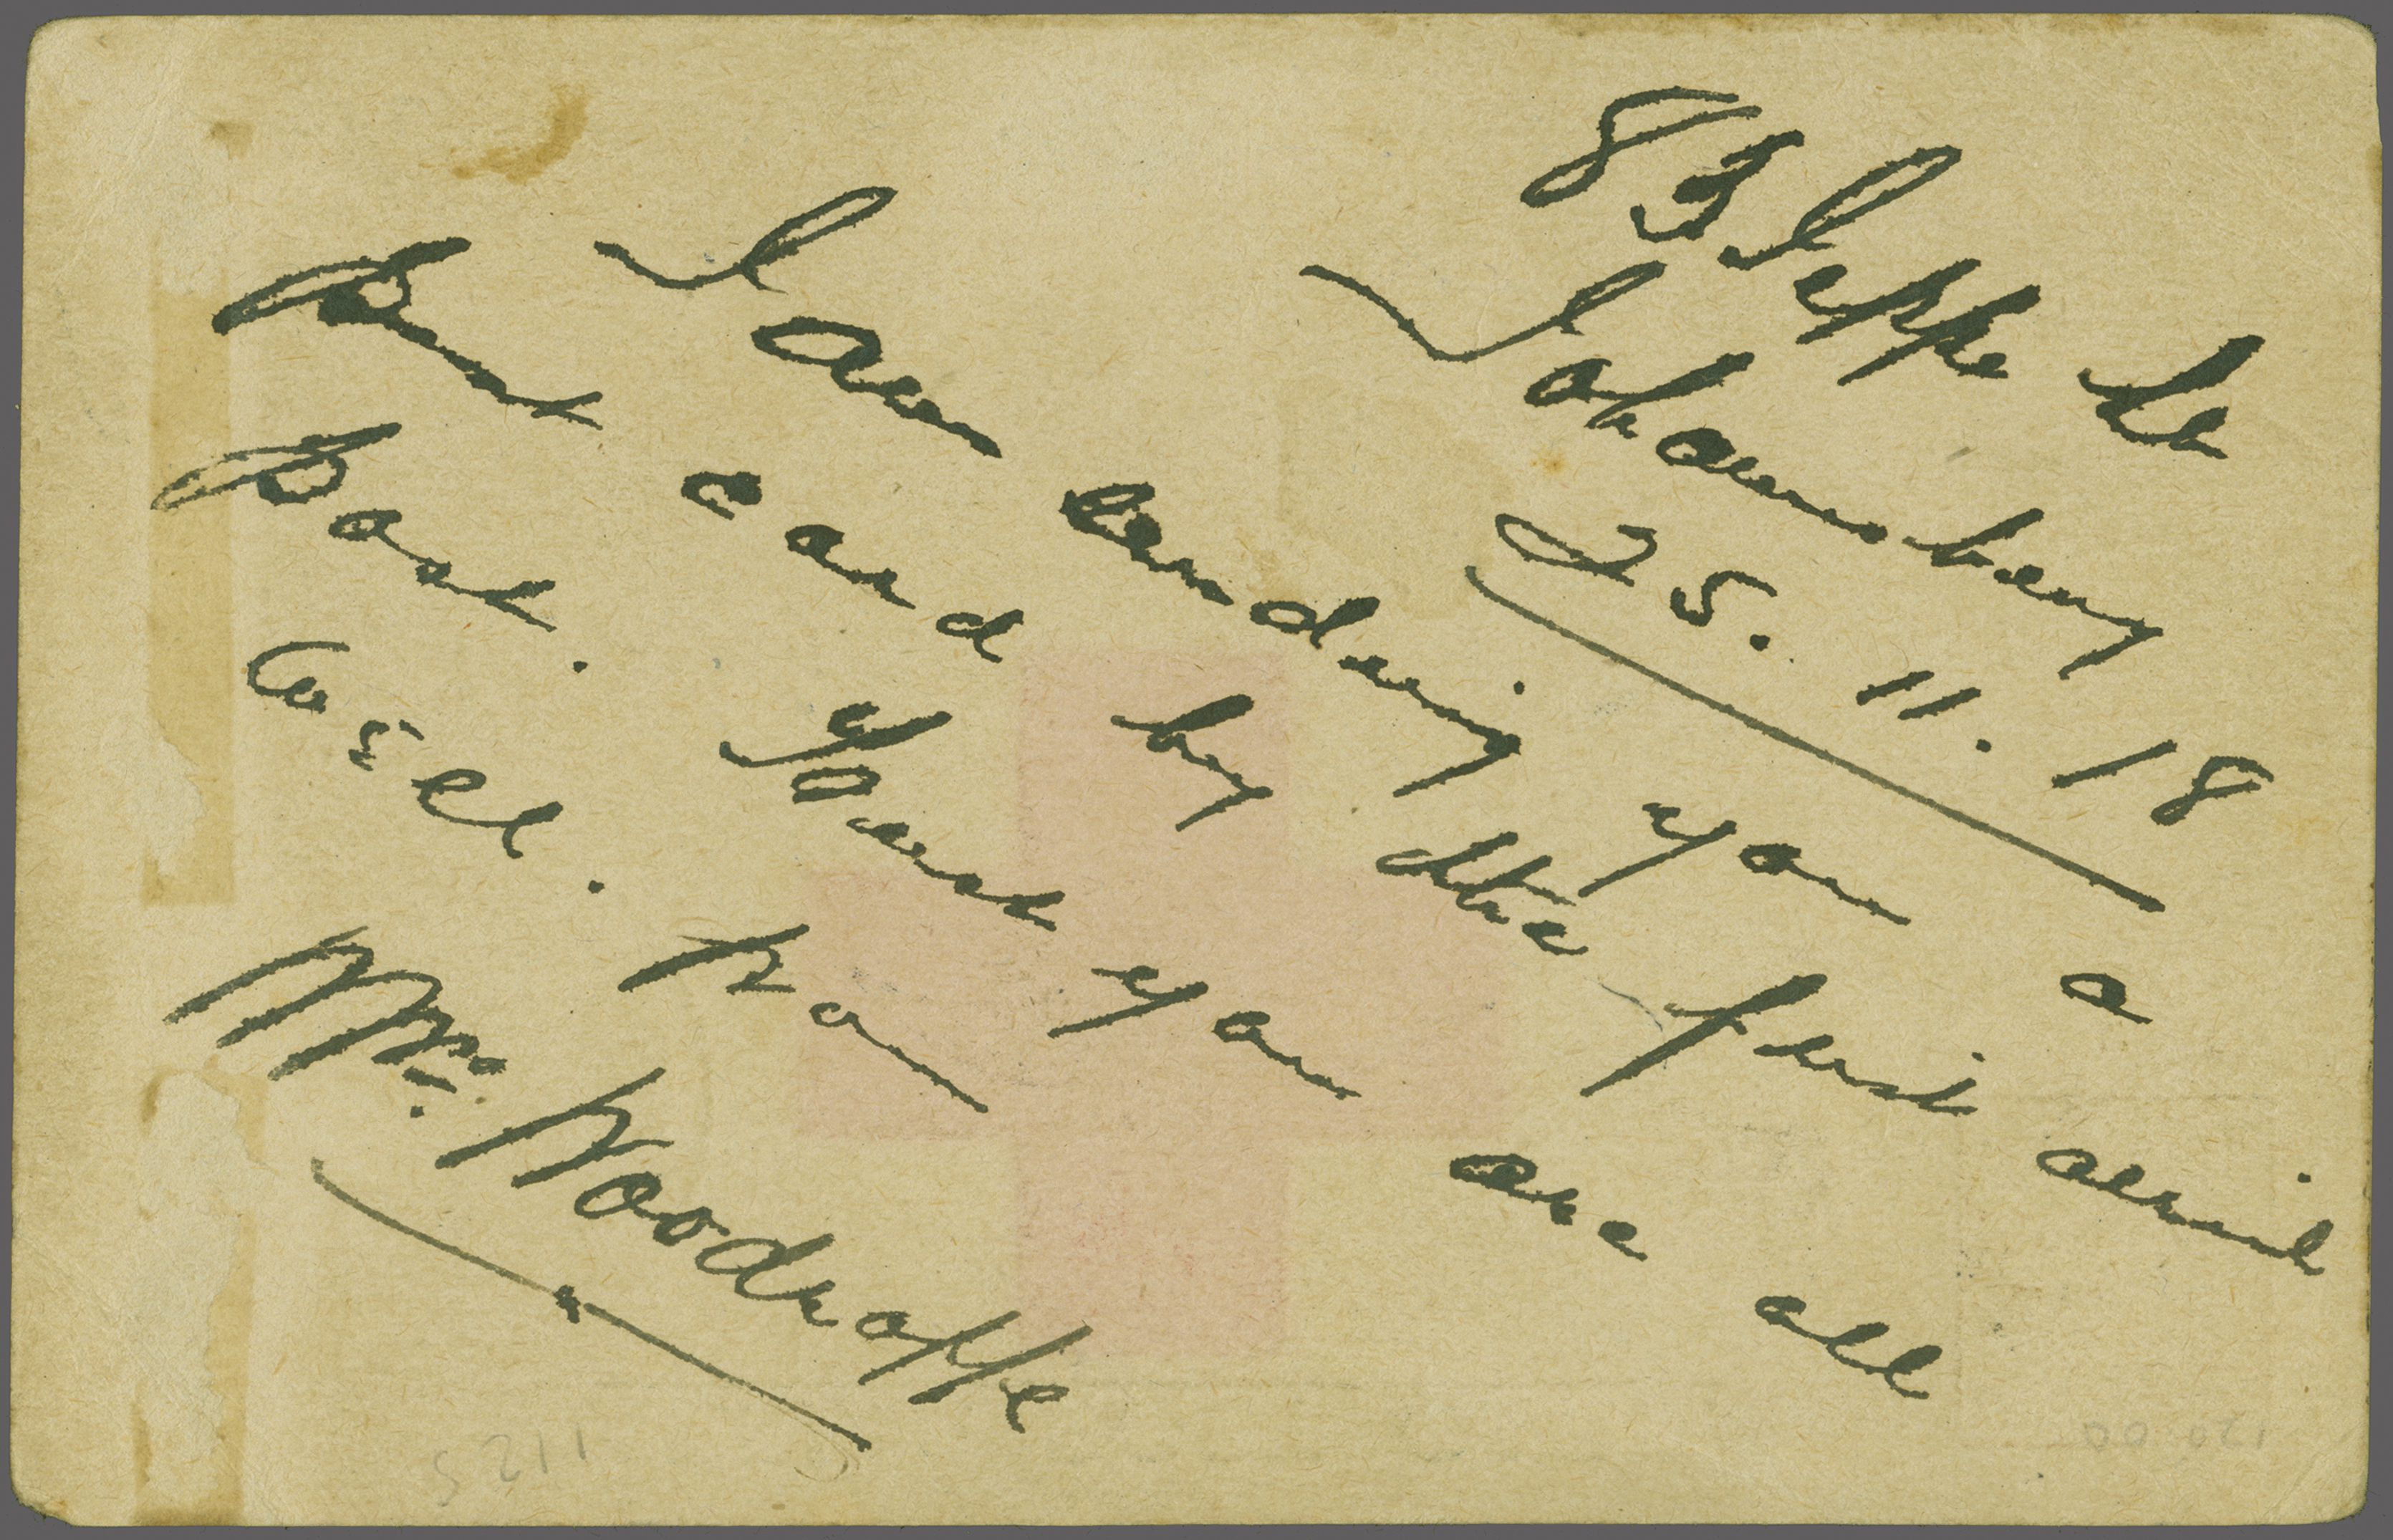 83 Jeppe St
Johannesburg
25. 11. 18
I am sending you a
Post card by the first aerial
Post. Trust you are all
well.
Woodroffe